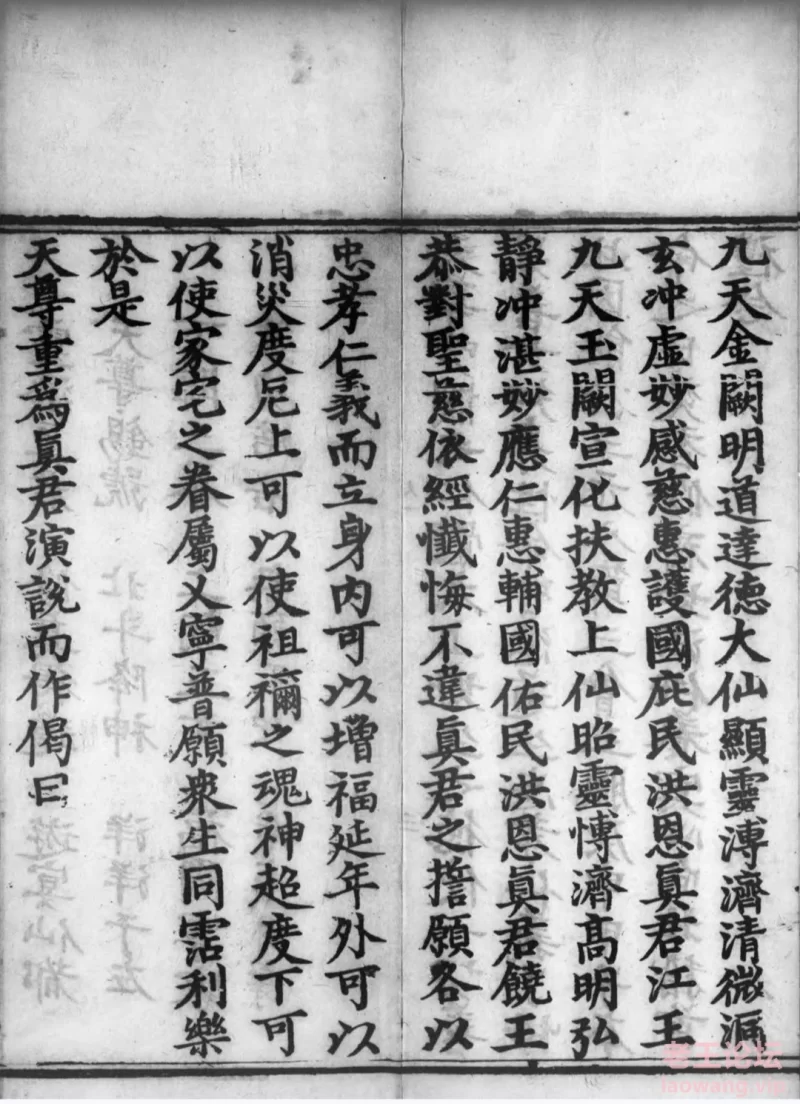 九天金闕明道達德大仙顯靈溥濟清微洞
玄冲虛妙感慈惠護國庇民洪恩眞君江王
九天玉闕宣化扶教上仙昭靈愽濟高明弘
靜冲湛妙應仁惠輔國佑民洪恩眞君饒王
恭對聖慈依經懺悔不違眞君之誓願各以
忠孝仁義而立身内可以增福延年外可以
消災度厄上可以使祖禰之魂神超度下可
以使家宅之眷屬乂寧普願衆生同霑利樂
於是
天尊重爲眞君演說而作偈曰
老王论坛
laowang.vip